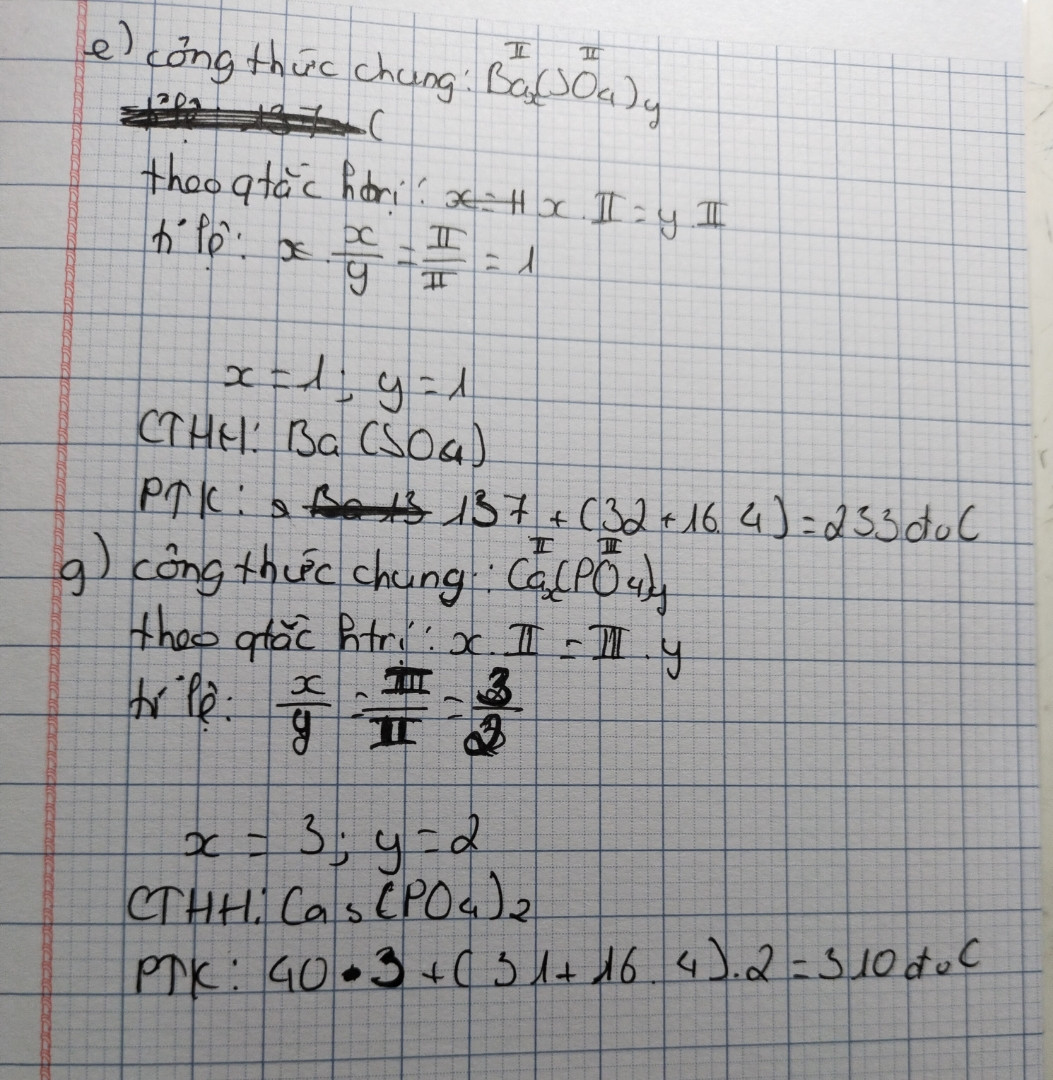 e) công thức chung: Baₓ(SO₄)y
II II
(
theo qtắc htrị: x = II x . II = y . II
tỉ lệ: x . x/y = II/II = 1
x = 1; y = 1
CTHH: Ba (SO₄)
PTK: 137 + (32 + 16. 4) = 233 đvC
g) công thức chung: Caₓ(PO₄)y
II III
theo qtắc htrị: x. II = III . y
tỉ lệ: x/y = III/II = 3/2
x = 3; y = 2
CTHH: Ca₃(PO₄)₂
PTK: 40 . 3 + (31 + 16. 4).2 = 310 đvC